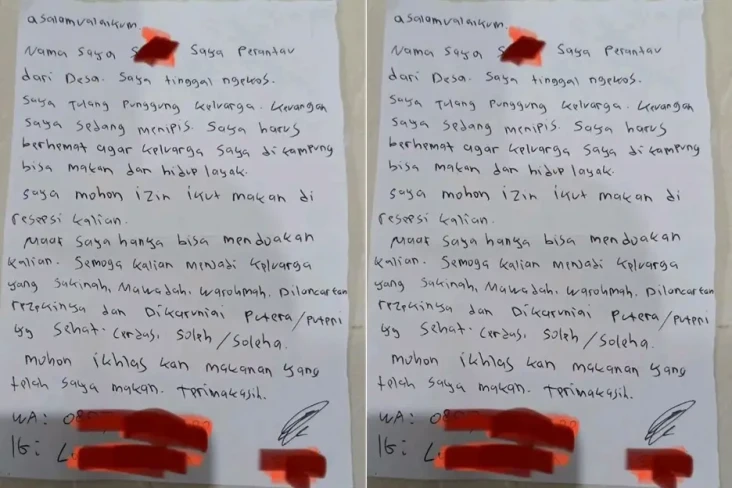 asalamualaikum.
Nama saya S Saya Perantau
dari Desa. Saya tinggal ngekos.
Saya Tulang Punggung keluarga. Keuangan
saya sedang menipis. Saya harus
berhemat agar keluarga saya di kampung
bisa makan dan hidup layak.
saya mohon izin ikut makan di
resepsi kalian.
Maaf saya hanya bisa mendoakan
kalian. Semoga kalian menjadi keluarga
yang sakinah, Mawadah, warohmah. Dilancarkan
rezekinya dan Dikaruniai Putera/puteri
yg Sehat. Cerdas, Soleh/Soleha.
mohon ikhlas kan makanan yang
telah saya makan. Terimakasih.
WA: 08
IG: L
asalamualaikum.
Nama saya S Saya Perantau
dari Desa. Saya tinggal ngekos.
Saya Tulang Punggung keluarga. Keuangan
saya sedang menipis. Saya harus
berhemat agar keluarga saya di kampung
bisa makan dan hidup layak.
saya mohon izin ikut makan di
resepsi kalian.
Maaf saya hanya bisa mendoakan
kalian. Semoga kalian menjadi keluarga
yang sakinah, Mawadah, warohmah. Dilancarkan
rezekinya dan Dikaruniai Putera/puteri
yg Sehat. Cerdas, Soleh/Soleha.
mohon ikhlas kan makanan yang
telah saya makan. Terimakasih.
WA: 08
IG: L